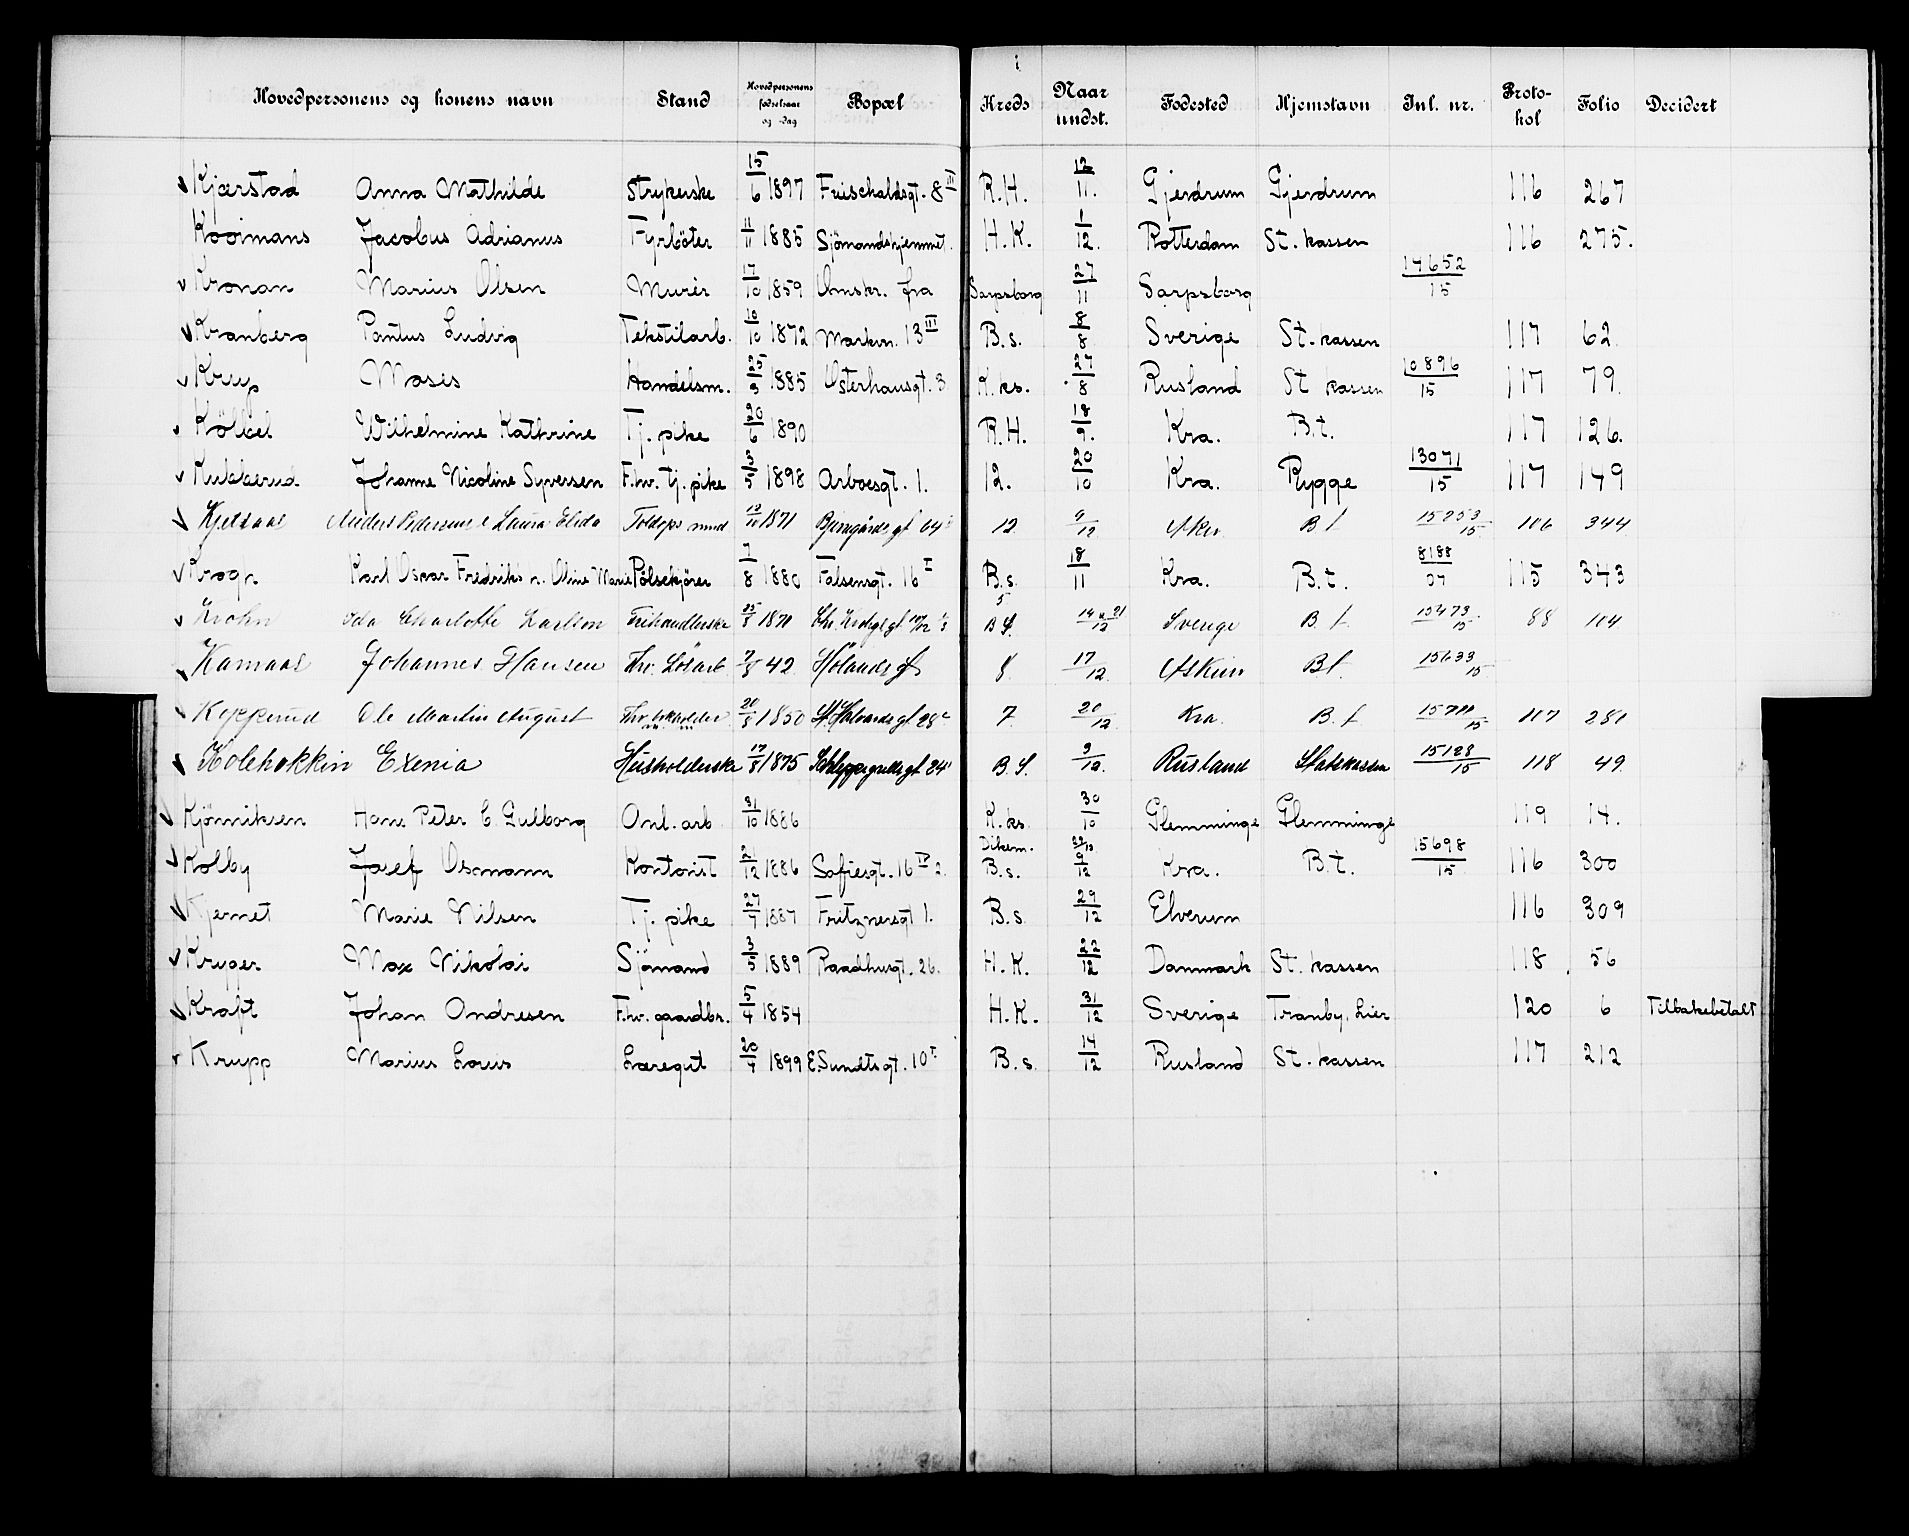 Hovedpersonens og konens navn Stand Hovedpersonens fødselsaar og -dag Bopæl Kreds Naar undst. Fødested Hjemstavn Jnl. nr. Protokol Folio Decidert
Kjærstad Anna Mathilde Strykerske 15/6 1897 8 III R.H. 12/11. Gjerdrum Gjerdrum 116 267
Kooimans Jacobus Adrianus Fyrböter 11/11 1885 Sjömandshjemmet. H.K. 1/12. Rotterdam St. kassen 116 275.
Kronan Marius Olsen Murer 17/10 1859 Omskr. fra Sarpsborg 27/11 Sarpsborg 14652/15
Kranberg Pontus Ludvig Tekstilarb. 10/10 1872 Markvn. 13 III B.s. 8/8 Sverige St. kassen 117 62.
Krup Moses Handelsm. 25/3 1885 Osterhausgt. 3 K.ks. 27/8 Rusland St kassen 10896/15 117 79.
Kölkel Wilhelmine Kathrine Tj. pike 20/6 1890 R.H. 18/9. Kra. B.t. 117 126.
Kukkerud Johanne Nicoline Syversen F.hv. tj. pike 3/5 1898 Arboesgt. 1. 12. 20/10 Kra. Rygge 13071/15 117 149
Kjelsaas Anders Pedersen e Laura Elida Toldops mnd 1871 gt 64 12 9/12 Aker B t 15253/15 106 344
Krogh Karl Oscar Fredriks n. Oline Marie Pölsekjörer 7/8 1880 Falsensgt. 16 I B.s. 18/11 Kra. B.t. 8188/07 115 343
Krohn Oda Charlotte Karlson Frihandlerske 25/8 1871 Chr. Kroghs gt 5 B S. 14 & 21/12 Sverige B t 15473/15 88 104
Kamaas Johannes Hansen Fhv. Lösarb 7/8 42 Hölands gt 8. 17/12 Askim B t. 15633/15
Kopperud Ole Martin August Fhv. 20/8 1850 St. Halvards gt 28 c 7. 20/12 Kra B. t 15711/15 117 281
Kolehokkin Exenia Husholderske 17/8 1875 Schleppegrellsgt 24 B. S. 3/12. Rusland Statskassen 15128/15 118 49.
Kjönniksen Hans Peter C. Gulborg Anl. arb 31/10 1886 K.ks. 30/10 Glemminge Glemminge 119 14.
Kolby Josef Osmann Kontorist 2/12 1886 Sofiesgt. 16 IV 2. Dikem. B.s. 9/12 Kra. B.t. 15698/15 116 300
Kjernet Marie Nilsen Tj. pike 27/7 1887 Fritznersgt 1. B.s. 29/12 Elverum 116 309
Kryger Max Nikolai Sjömand 3/5 1889 Raadhusgt. 26. H.K. 22/12 Danmark St. kassen 118 56
Kraft Johan Andresen F.hv. gaardbr. 5/4 1854 H.K. 31/12 Sverige Tranby, Lier 120 6 Tilbakebetalt
Krupp Marius Louis Læregut 20/7 1899 E.Sundtsgt. 10 I B.s. 14/12 Rusland St. kassen 117 212